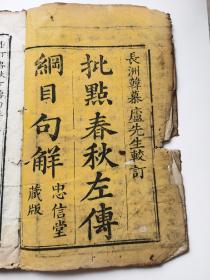 長洲韓慕廬先生較訂
批點春秋左傳
綱目句解
忠信堂
藏版